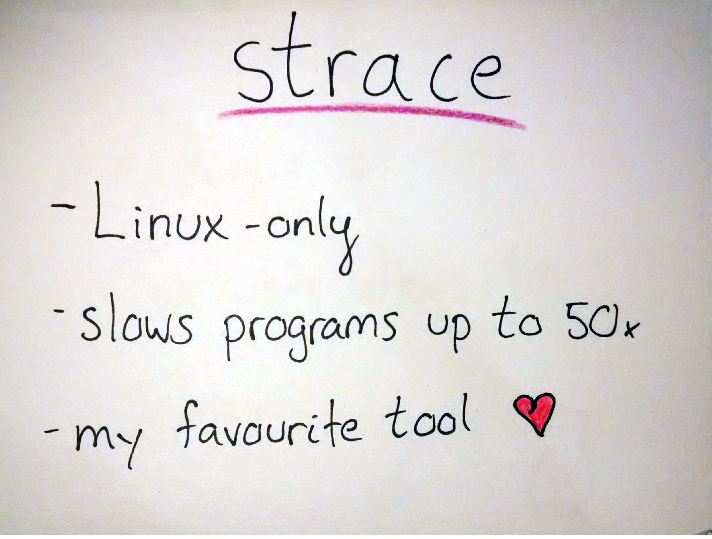 strace
- Linux-only
- slows programs up to 50x
- my favourite tool ♥